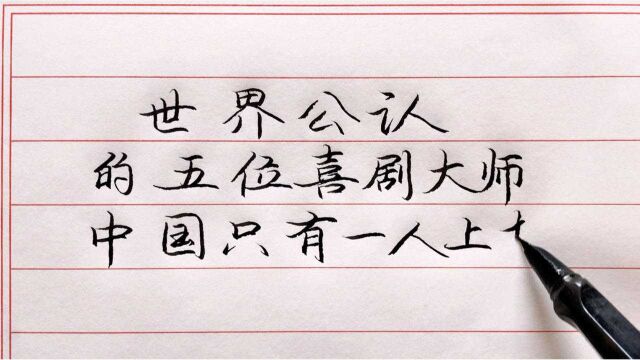 世界公认
的五位喜剧大师
中国只有一人上